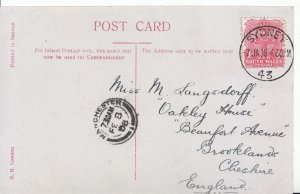 POST CARD
For Inland Postage only, this Space may
now be used for Communication
The Address only to be written here
SYDNEY
43
SOUTH WALES
Miss M. Langsdorff
"Oakley House"
"Beaufort Avenue"
Brooklands
Cheshire
England.
MANCHESTER
7.30AM
FE 3
08
Printed in Saxony